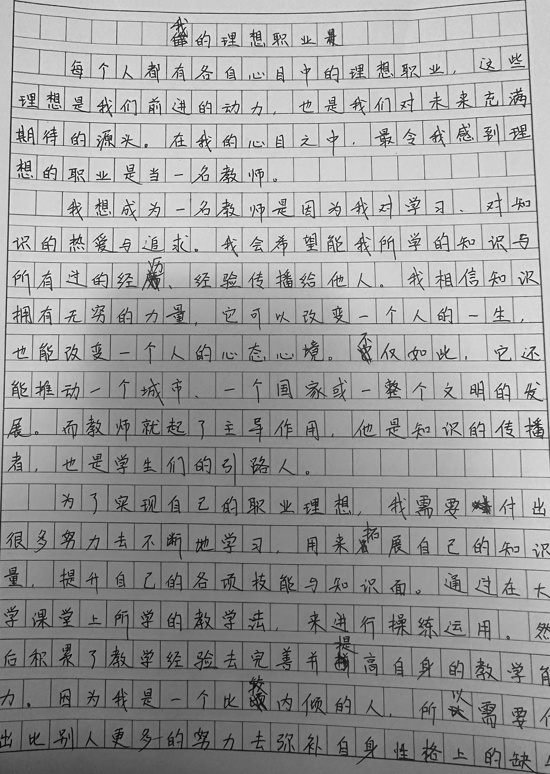 我的理想职业
每个人都有各自心目中的理想职业，这些
理想是我们前进的动力，也是我们对未来充满
期待的源头。在我的心目之中，最令我感到理
想的职业是当一名教师。
我想成为一名教师是因为我对学习、对知
识的热爱与追求。我会希望能我所学的知识与
所有过的经历、经验传播给他人。我相信知识
拥有无穷的力量，它可以改变一个人的一生，
也能改变一个人的心态心境。不仅如此，它还
能推动一个城市、一个国家或一整个文明的发
展。而教师就起了主导作用，他是知识的传播
者，也是学生们的引路人。
为了实现自己的职业理想，我需要付出
很多努力去不断地学习，用来拓展自己的知识
量，提升自己的各项技能与知识面。通过在大
学课堂上所学的教学法，来进行操练运用。然
后积累了教学经验去完善并提高自身的教学能
力。因为我是一个比较内倾的人，所以需要付
出比别人更多的努力去弥补自身性格上的缺